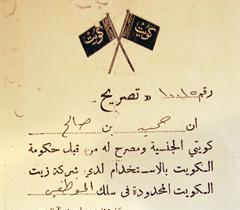 كويت كويت
رقم « تصريح »
ان حميد بن صالح
كويتي الجنسية ومصرح له من قبل حكومة
الكويت بالاستخدام لدى شركة زيت
الكويت المحدودة في سلك الموظفين